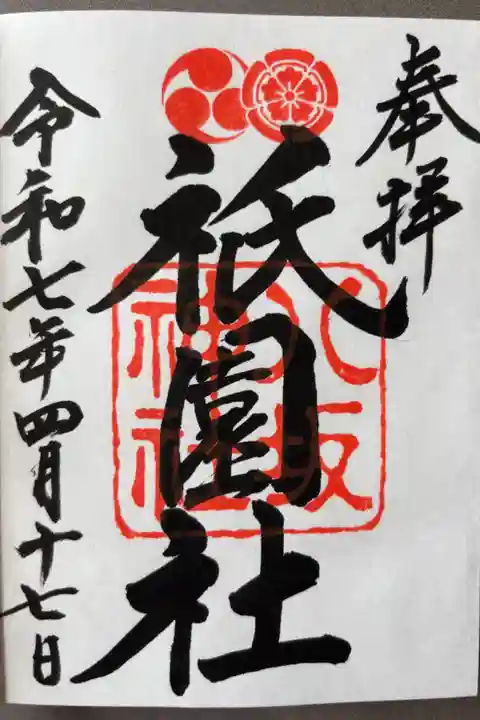 奉拝
八坂
神社
祇園社
令和七年四月十七日